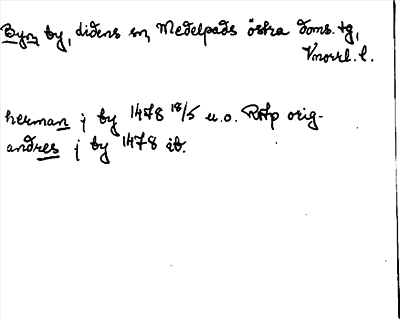 Byn, by, Lidens sn, Medelpads östra doms. tg,
Vnorrl. l.
herman j by 1478 18/5 u.o. RAp orig.
andres j by 1478 ib.